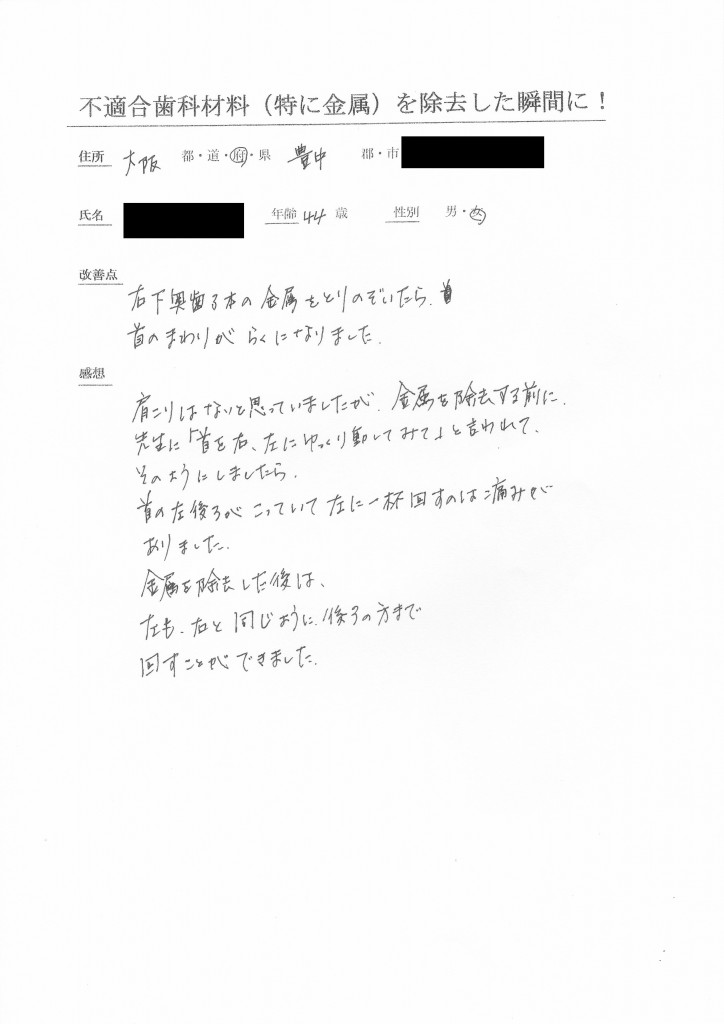 不適合歯科材料（特に金属）を除去した瞬間に！
住所 大阪 都・道・府・県 豊中 郡・市
氏名 年齢 44 歳 性別 男・女
改善点
右下奥歯3本の金属をとりのぞいたら、首
首のまわりがらくになりました。
感想
肩こりはないと思っていましたが、金属を除去する前に、
先生に「首を右、左にゆっくり動してみて」と言われて、
そのようにしましたら、
首の左後ろがこっていて左に一杯回すのは痛みが
ありました。
金属を除去した後は、
左も、右と同じように、後ろの方まで
回すことができました。